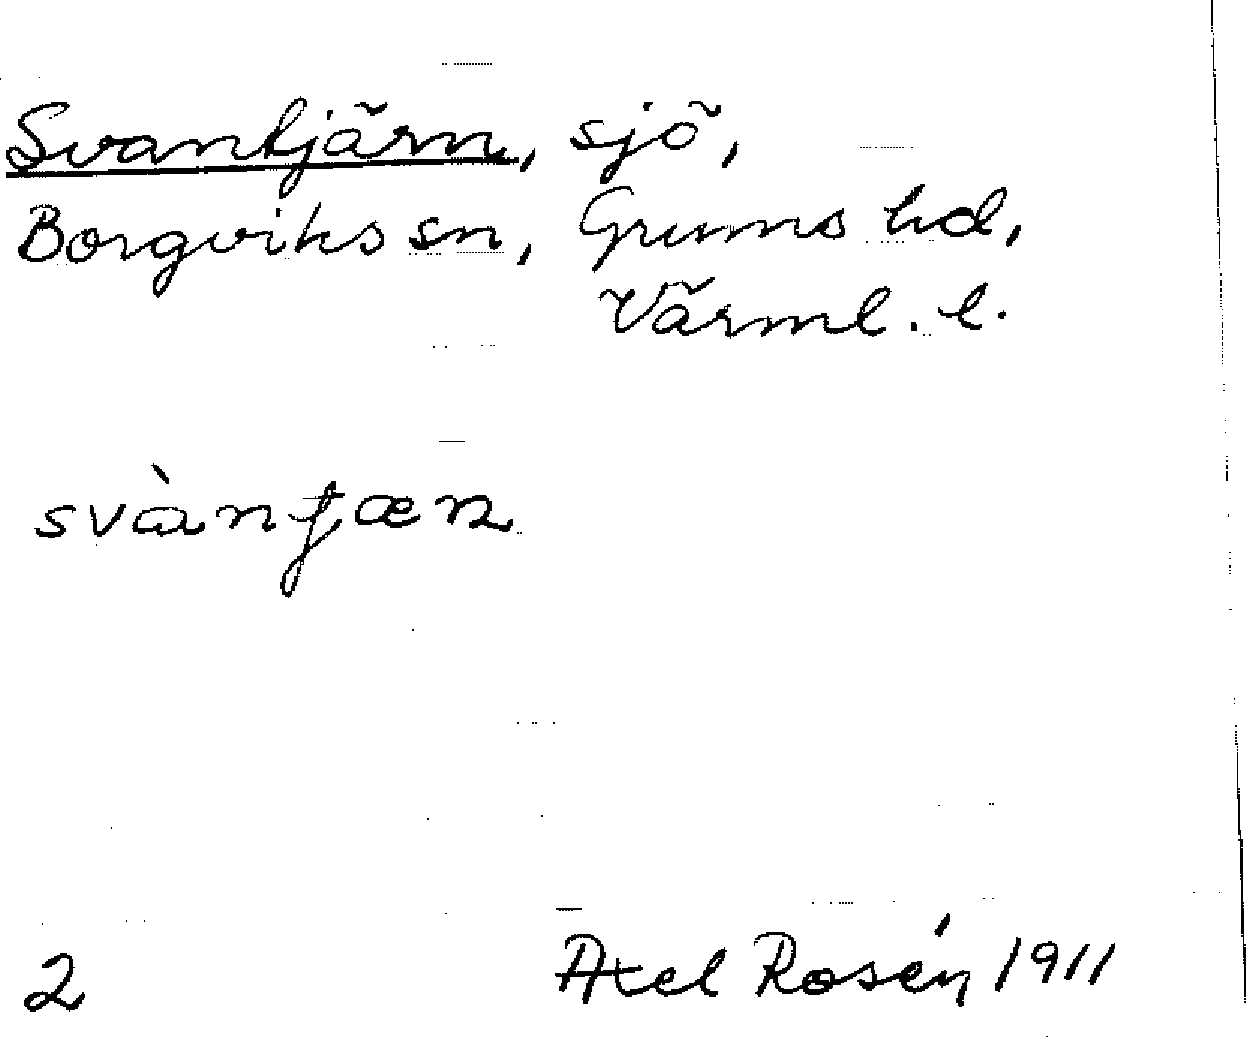 Svantjärn, sjö,
Borgviks sn, Grums hd,
Värml. l.
svàntjæn
2 Axel Rosén 1911